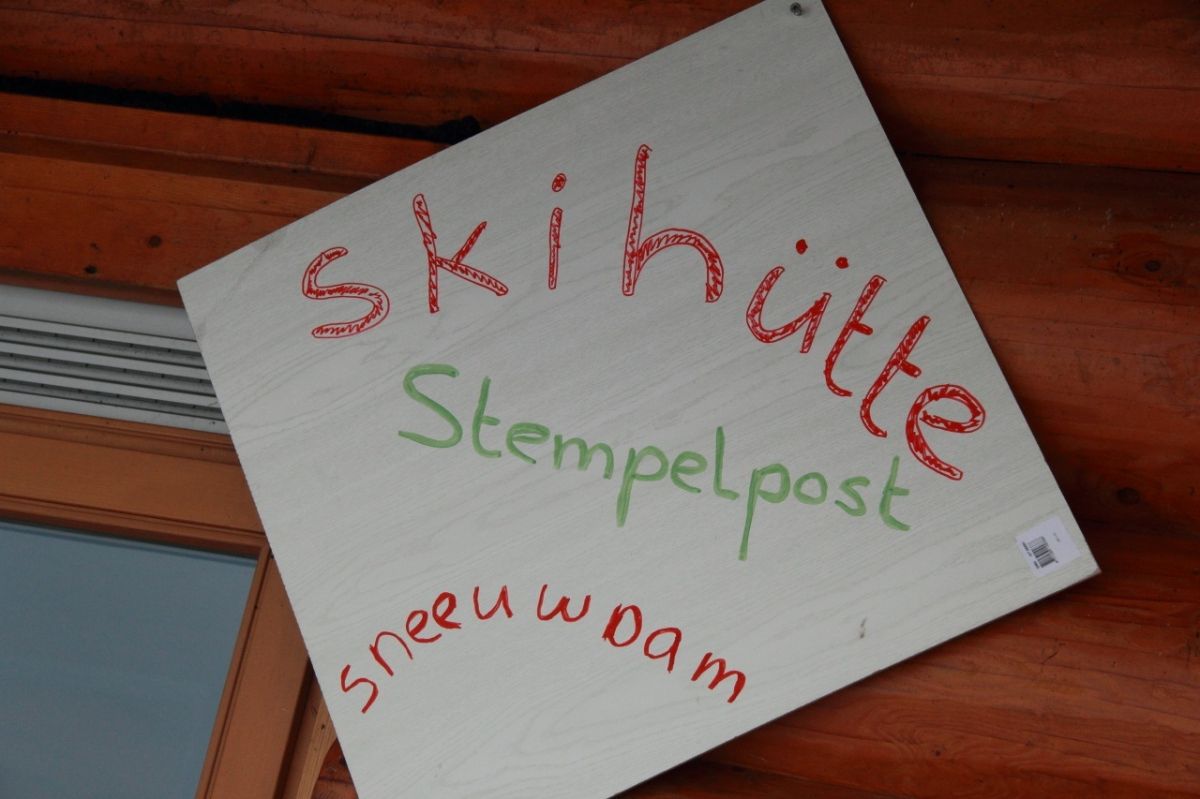 skihütte
Stempelpost
sneeuwDam